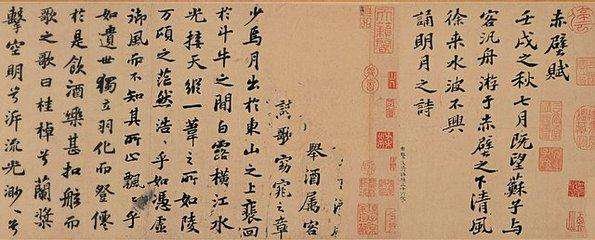 赤壁賦
壬戌之秋七月既望蘇子與
客汎舟游于赤壁之下清風
徐来水波不興
誦明月之詩
舉酒屬客
歌窈窕章
少焉月出於東山之上裵回
於斗牛之間白露橫江水
光接天縱一葦之所如陵
萬頃之茫然浩〻乎如憑虛
御風而不知其所止飄〻乎
如遺世獨立羽化而登僊
於是飲酒樂甚扣舷而
歌之歌曰桂棹兮蘭槳
擊空明兮泝流光渺〻